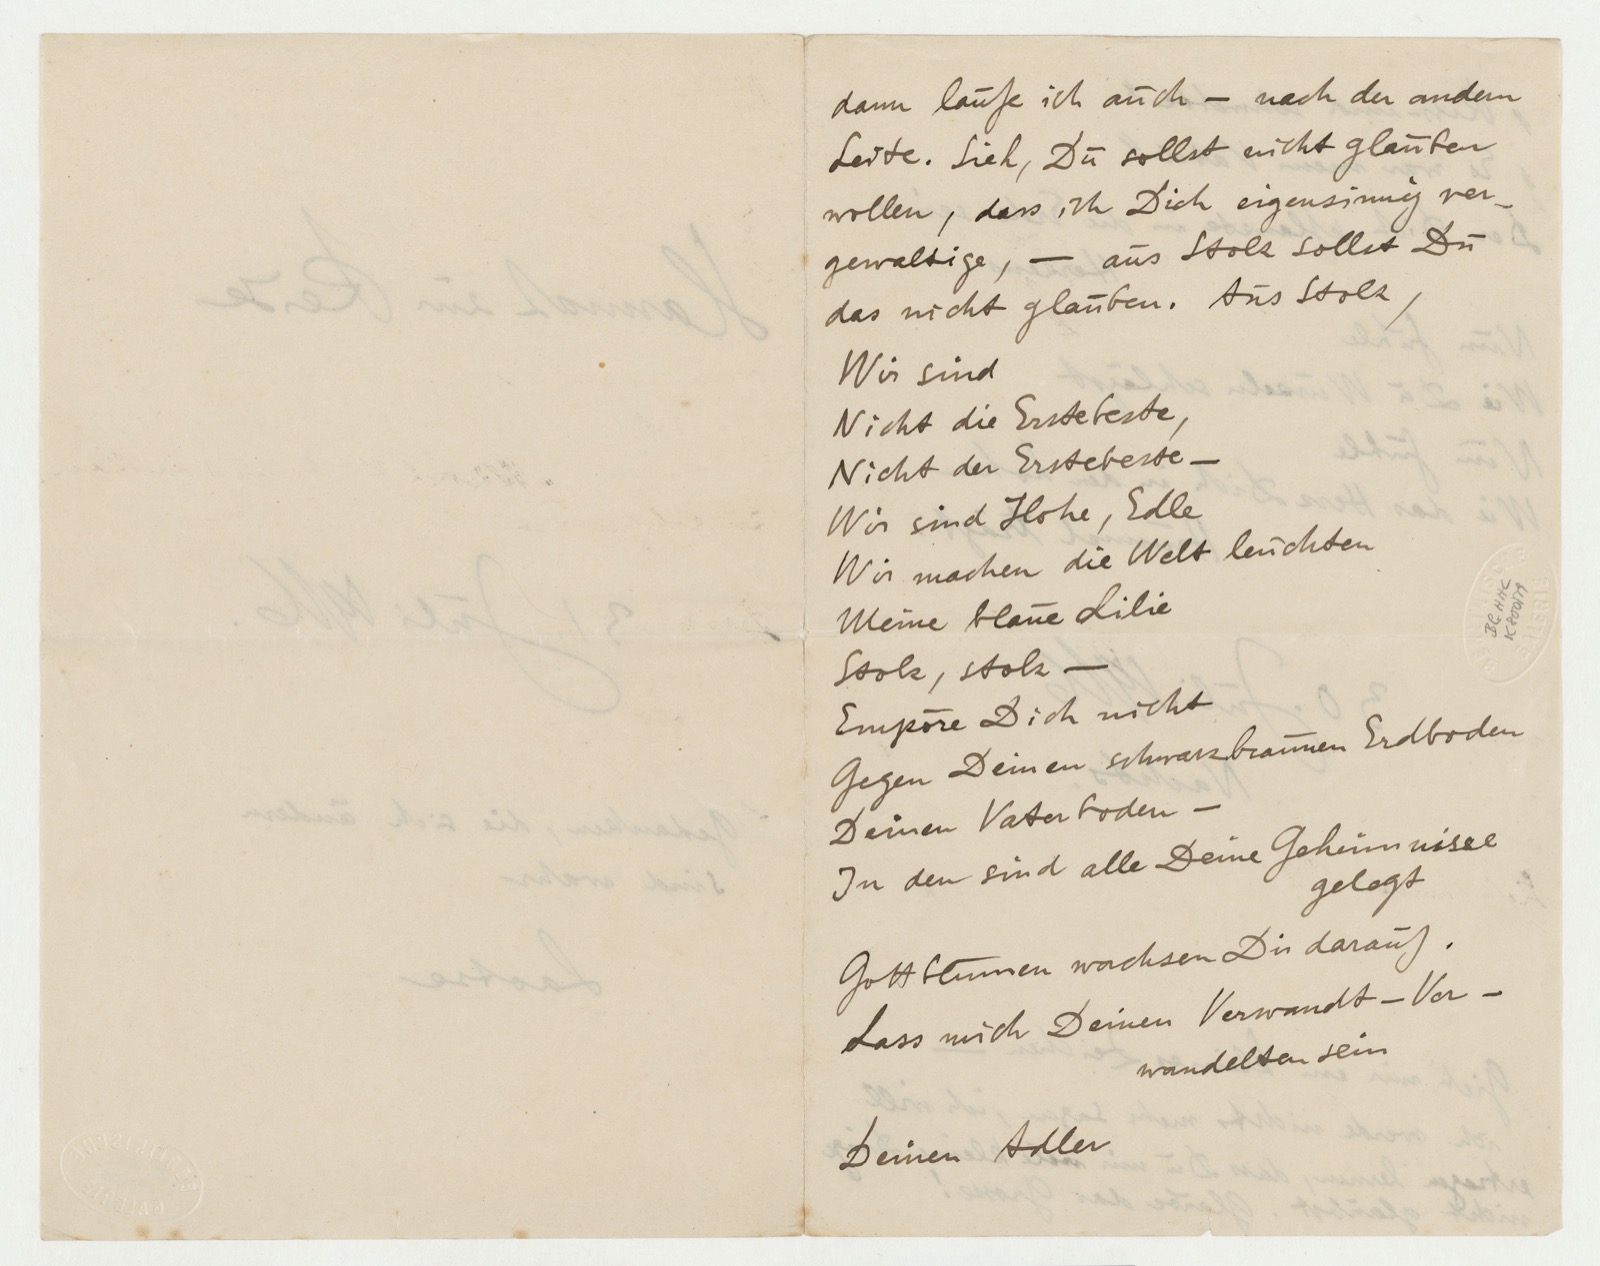 dann laufe ich auch – nach der andern
Seite. Sieh, Du sollst nicht glauben
wollen, dass ich Dich eigensinnig ver-
gewaltige, – aus Stolz sollst Du
das nicht glauben. Aus Stolz,
Wir sind
Nicht die Erstebeste,
Nicht der Erstebeste –
Wir sind Hohe, Edle
Wir machen die Welt leuchten
Meine blaue Lilie
Stolz, stolz –
Empöre Dich nicht
Gegen Deinen schwarzbraunen Erdboden
Deinen Vaterboden –
In den sind alle Deine Geheimnisse
gelegt
Gottblumen wachsen Dir darauf.
Lass mich Deinen Verwandt – Ver –
wandelten sein
Deinen Adler
BG HHC